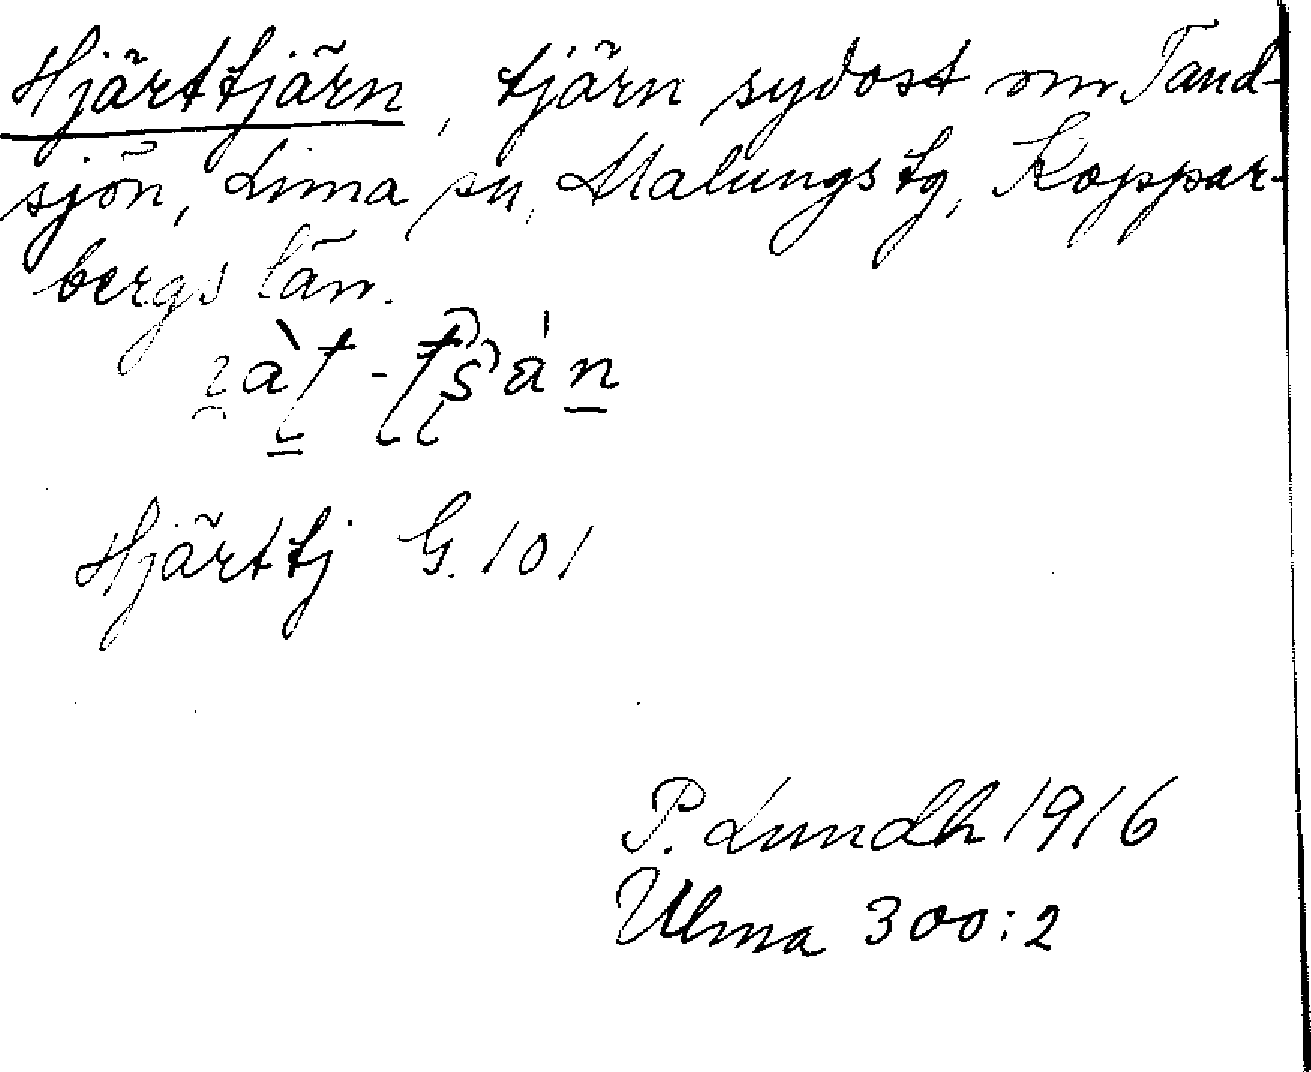 Hjärttjärn, tjärn sydost om Tand-
sjön, Lima sn, Malungs tg, Koppar-
bergs län.
Hjärttj G. 101
P. Lundh 1916
Ulma 300:2